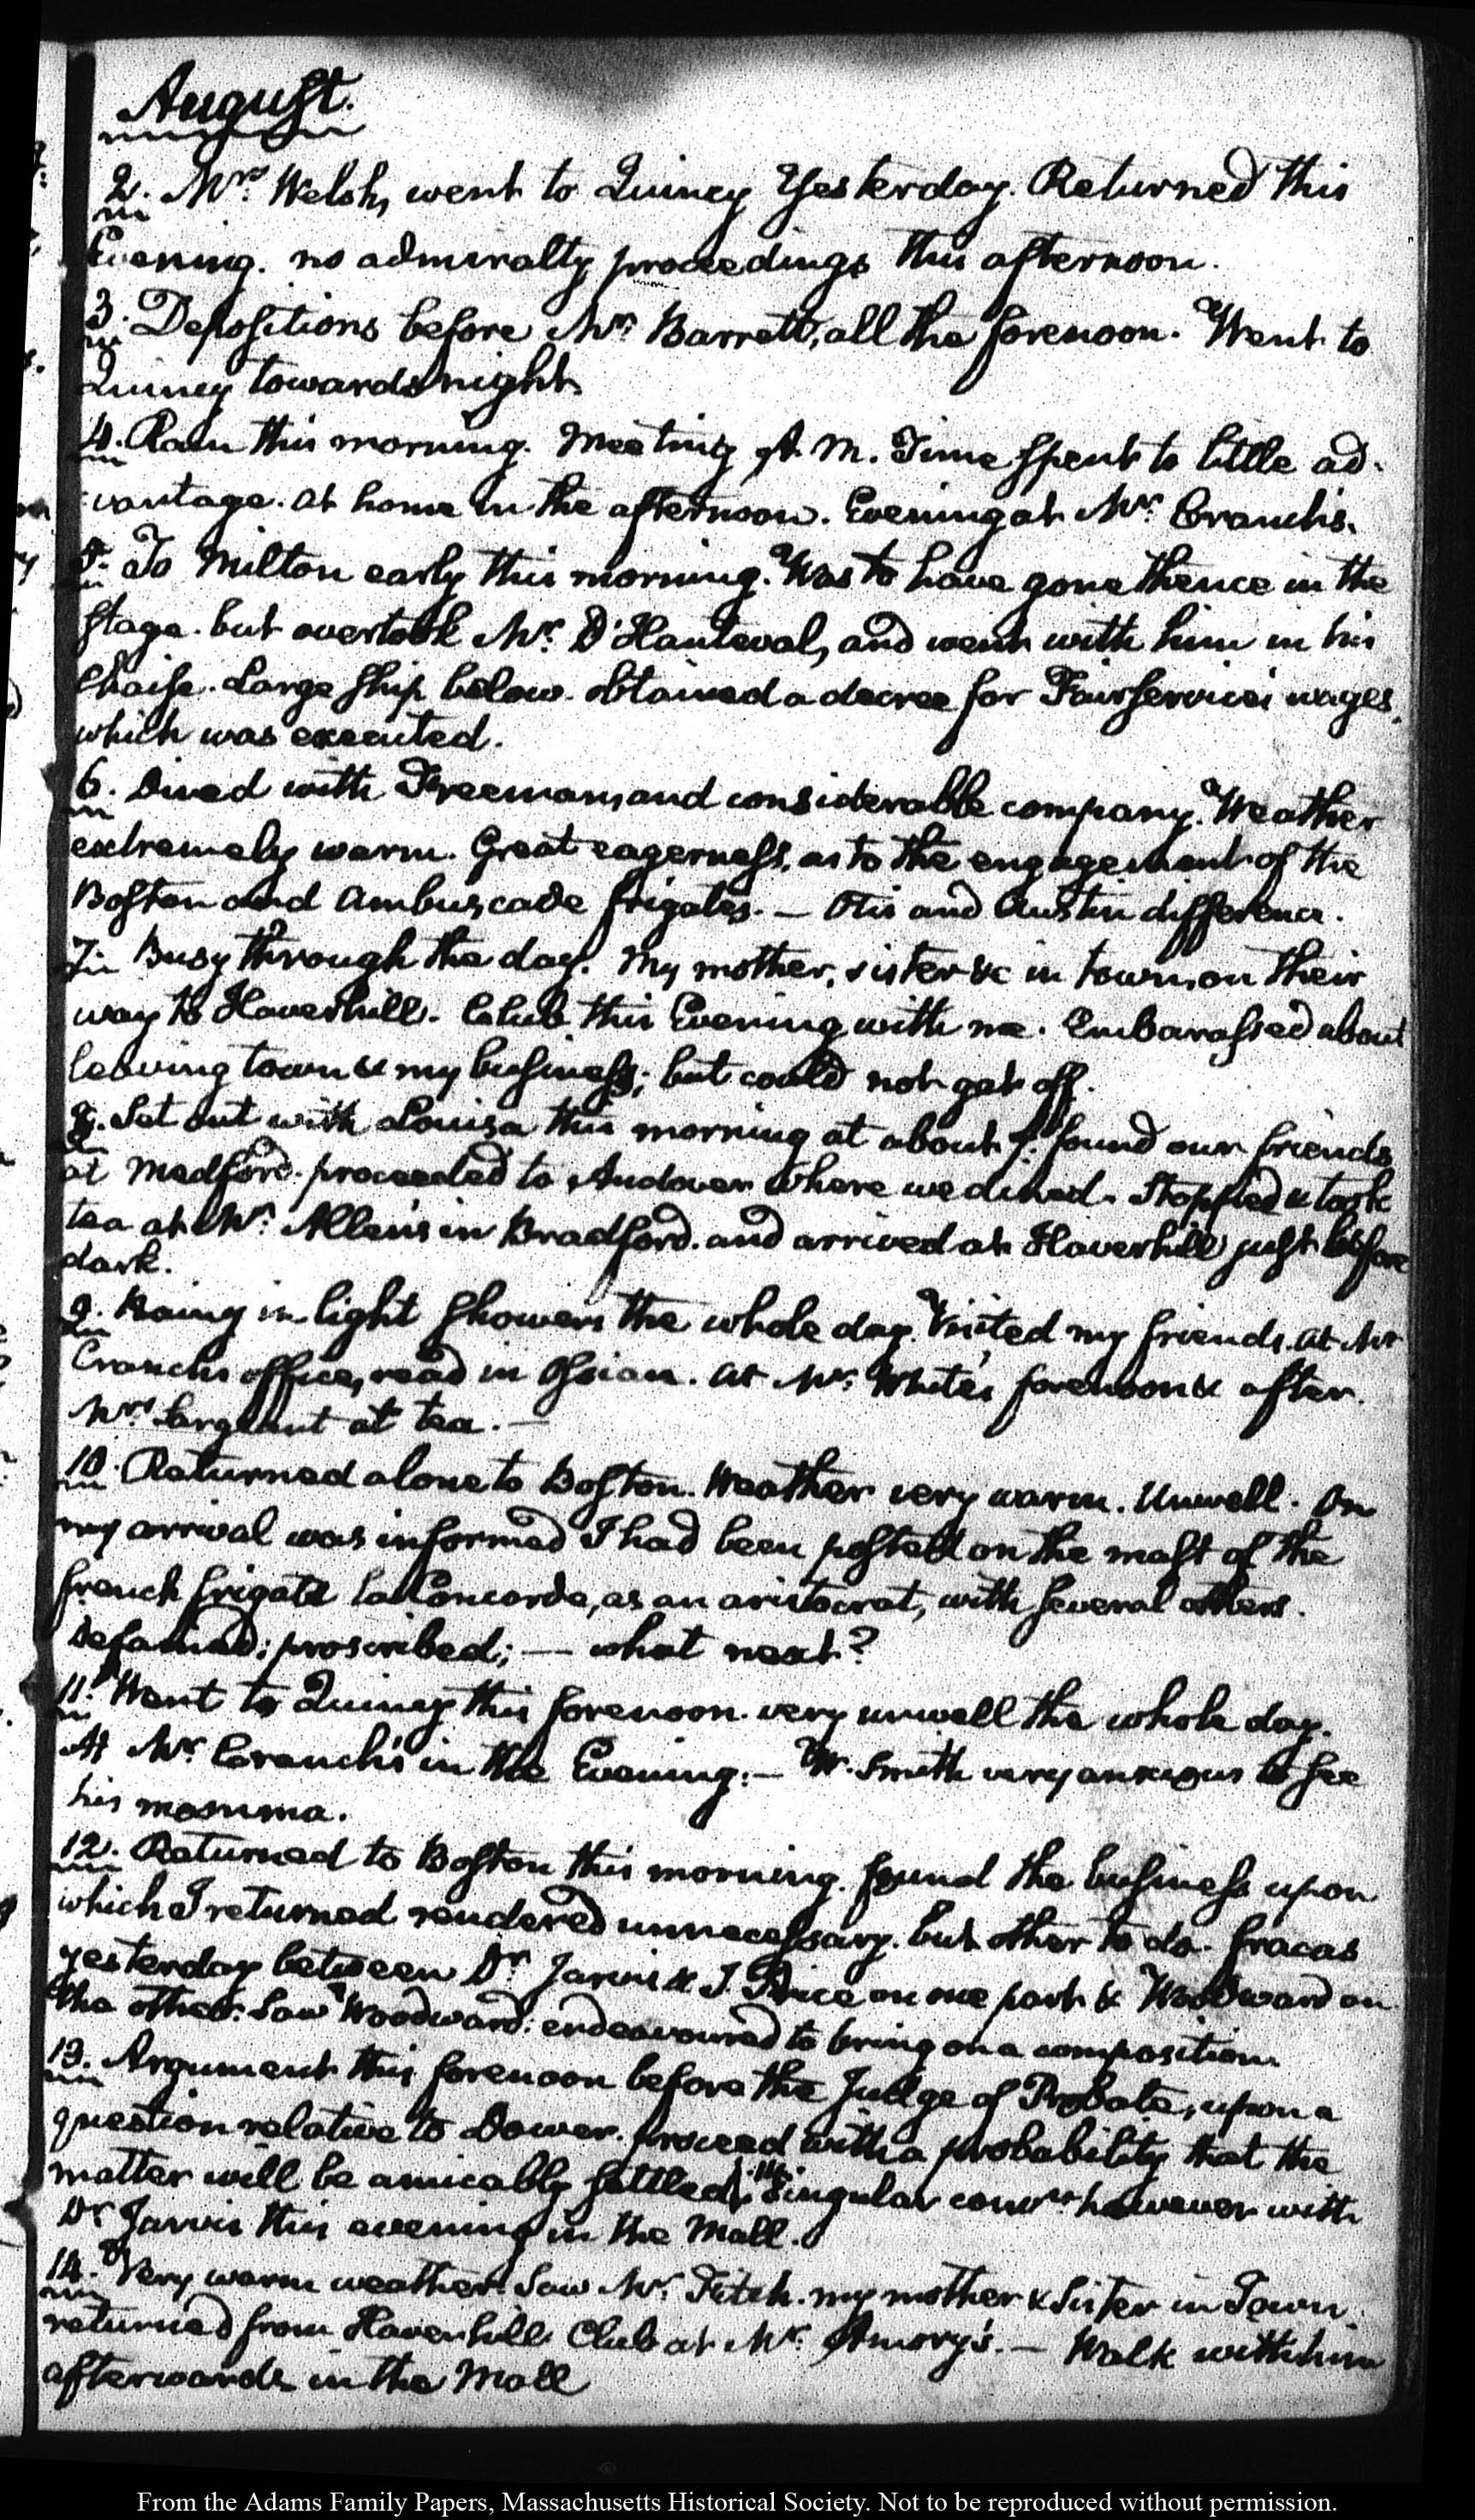 August.
2. Mrs. Welsh, went to Quincy Yesterday. Returned this
Evening. no admiralty proceedings this afternoon.
3. Depositions before Mr. Barrett, all the forenoon. Went to
Quincy towards night.
4. Rain this morning. Meeting A. M. Time spent to little ad-
vantage. at home in the afternoon. Evening at Mr. Cranch's.
5. To Milton early this morning. Was to have gone thence in the
stage. but overtook Mr. D'Hauteval, and went with him in his
Chaise. Large ship below. obtained a decree for Fairservice's wages,
which was executed.
6. Dined with Freeman, and considerable company. Weather
extremely warm. Great eagerness, as to the engagement of the
Boston and Ambuscade frigates. — Otis and Austin difference.
7. Busy through the day. My mother, sister &c in town, on their
way to Haverhill. Club this Evening with me. Embarassed about
leaving town & my business; but could not get off.
8. Set out with Louisa this morning at about 7. found our friends
at Medford. proceeded to Andover where we dined. Stopped & took
tea at Mr. Allen's in Bradford. and arrived at Haverhill just before
dark.
9. Rainy in light showers the whole day. Visited my friends. at Mr
Cranch's office, read in Ossian. at Mr. White's forenoon & after.
Mrs Sargeant at tea. —
10. Returned alone to Boston. Weather very warm. Unwell. On
my arrival was informed I had been posted on the mast of the
french frigate la Concorde, as an aristocrat, with several others.
Defamed; proscribed; — what next?
11. Went to Quincy this forenoon. very unwell the whole day.
At Mr. Cranch's in the Evening. — W. Smith very anxious to see
his mamma.
12. Returned to Boston this morning. found the business upon
which I returned rendered unnecessary. but other to do. fracas
yesterday between Dr. Jarvis & J. Price on one part & Woodward on
the other. Saw Woodward: endeavoured to bring on a composition.
13. Argument this forenoon before the Judge of Probate, upon a
question relative to Dower. proceed with a probability that the
matter will be amicably settled. 14. Singular convn. however with
Dr Jarvis this evening in the Mall.
14. Very warm weather. Saw Mr. Fitch. my mother & Sister in Town
returned from Haverhill. Club at Mr. Amory's. — Walk with him
afterwards in the Mall
From the Adams Family Papers, Massachusetts Historical Society. Not to be reproduced without permission.